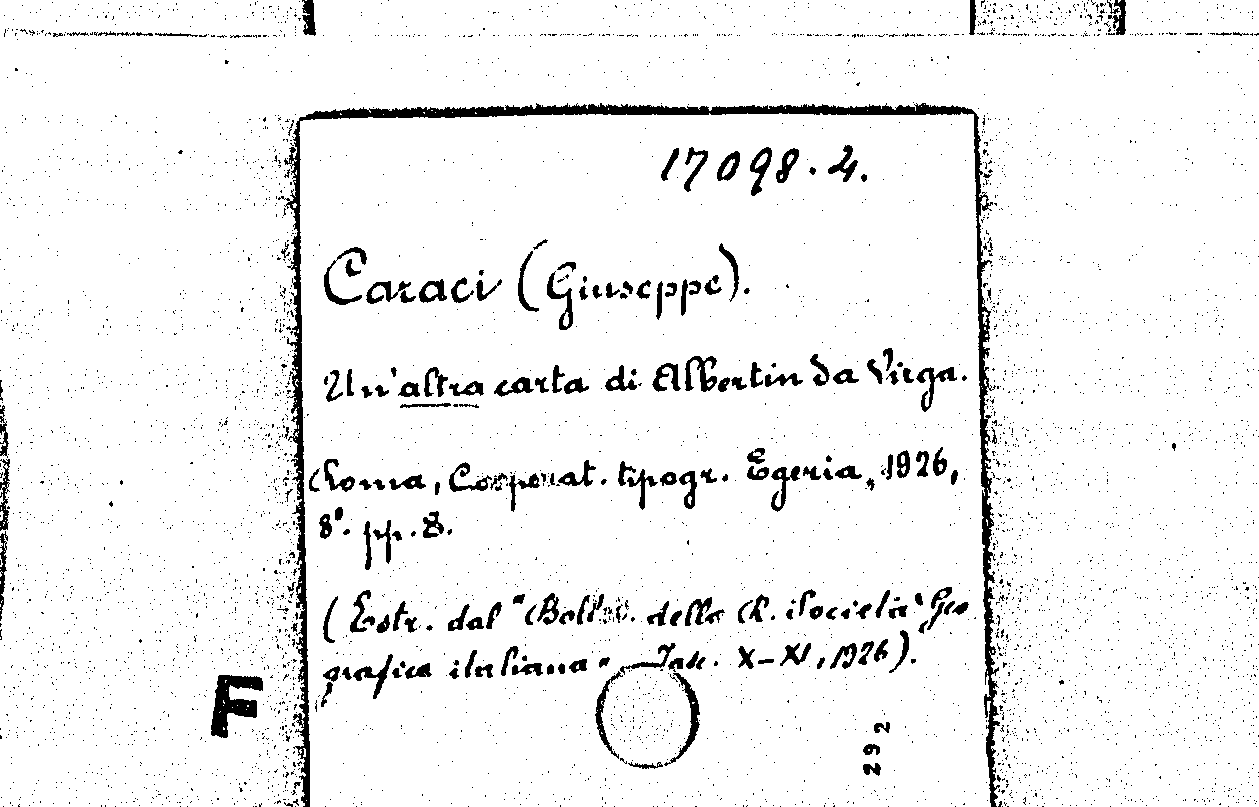 17098.2.
Caraci (Giuseppe).
Un'altra carta di Albertin da Virga.
Roma, Cooperat. tipogr. Egeria, 1926,
8°. pp. 8.
(Estr. dal "Bollet. della R. Società Geo
grafica italiana" Fasc. X-XI, 1926).
F
292